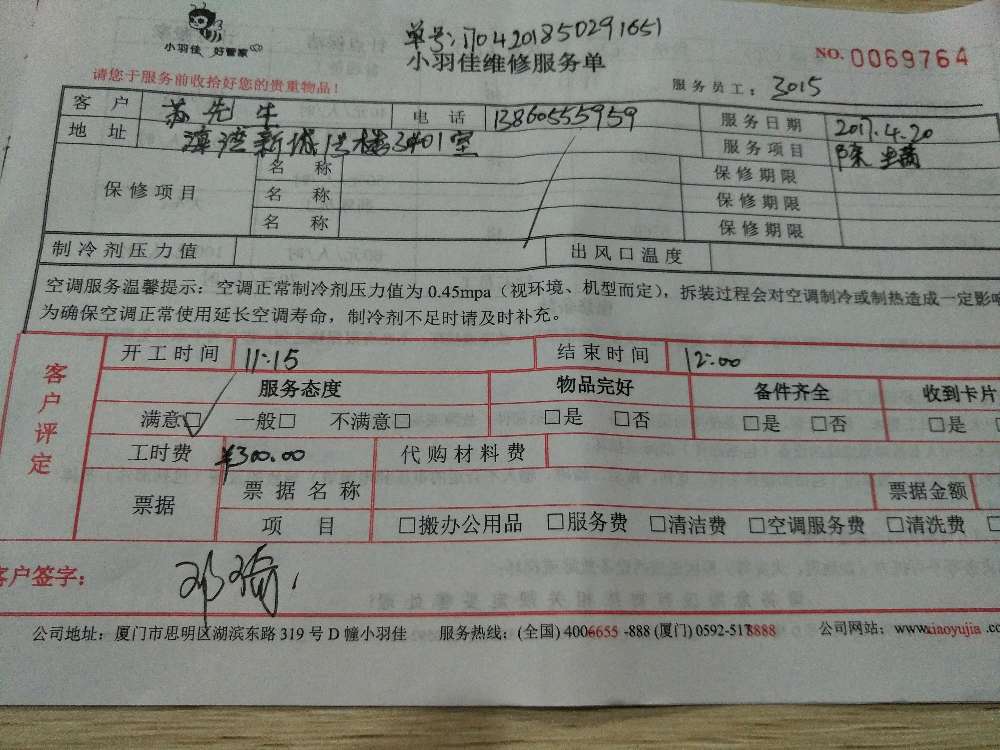 小羽佳 好管家
单号:170420185029 1651
小羽佳维修服务单
NO. 0069764
请您于服务前收拾好您的贵重物品!
服务员工: 3015
客户 苏先生 电话 13860555959 服务日期 2017.4.20
地址 新城 楼3401室 服务项目 除
保修项目 名称 保修期限
名称 保修期限
名称 保修期限
制冷剂压力值 出风口温度
空调服务温馨提示:空调正常制冷剂压力值为 0.45mpa(视环境、机型而定),拆装过程会对空调制冷或制热造成一定影响
为确保空调正常使用延长空调寿命,制冷剂不足时请及时补充。
客户评定
开工时间 11:15 结束时间 12:00
服务态度 物品完好 备件齐全 收到卡片
满意□ 一般□ 不满意□ □是 □否 □是 □否 □是
工时费 ¥300.00 代购材料费
票据 票据名称 票据金额
项目 □搬办公用品 □服务费 □清洁费 □空调服务费 □清洗费
客户签字: 邓
公司地址:厦门市思明区湖滨东路 319 号 D 幢小羽佳 服务热线:(全国) 4006655 -888 (厦门) 0592-5178888 公司网站:www.xiaoyujia .co